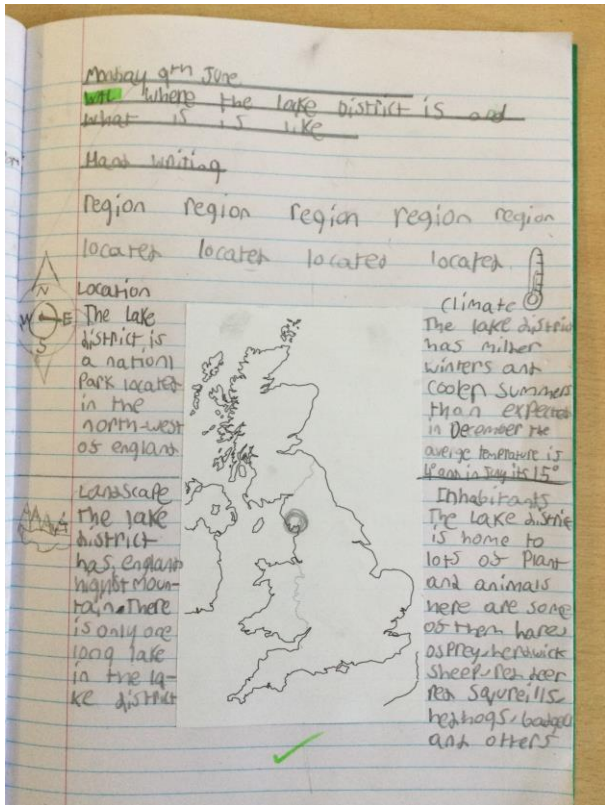 Monday 9th June
WAL where the lake District is and
what is is like
Hand writing
region region region region region
located located located located
N
W E
S
Location
The lake
district is
a nationl
Park located
in the
north-west
of england
Landscape
The lake
district
has england
highst moun-
tain. There
is only one
long lake
in the la-
ke district
Climate
The lake district
has milder
winters and
cooler summers
than expected
in December the
averige temperature is
4° and in July its 15°
Inhabitants
The Lake district
is home to
lots of Plant
and animals
here are some
of them hares
osprey, herdwick
sheep, red deer
red squreills,
hedhogs, badgers
and otters